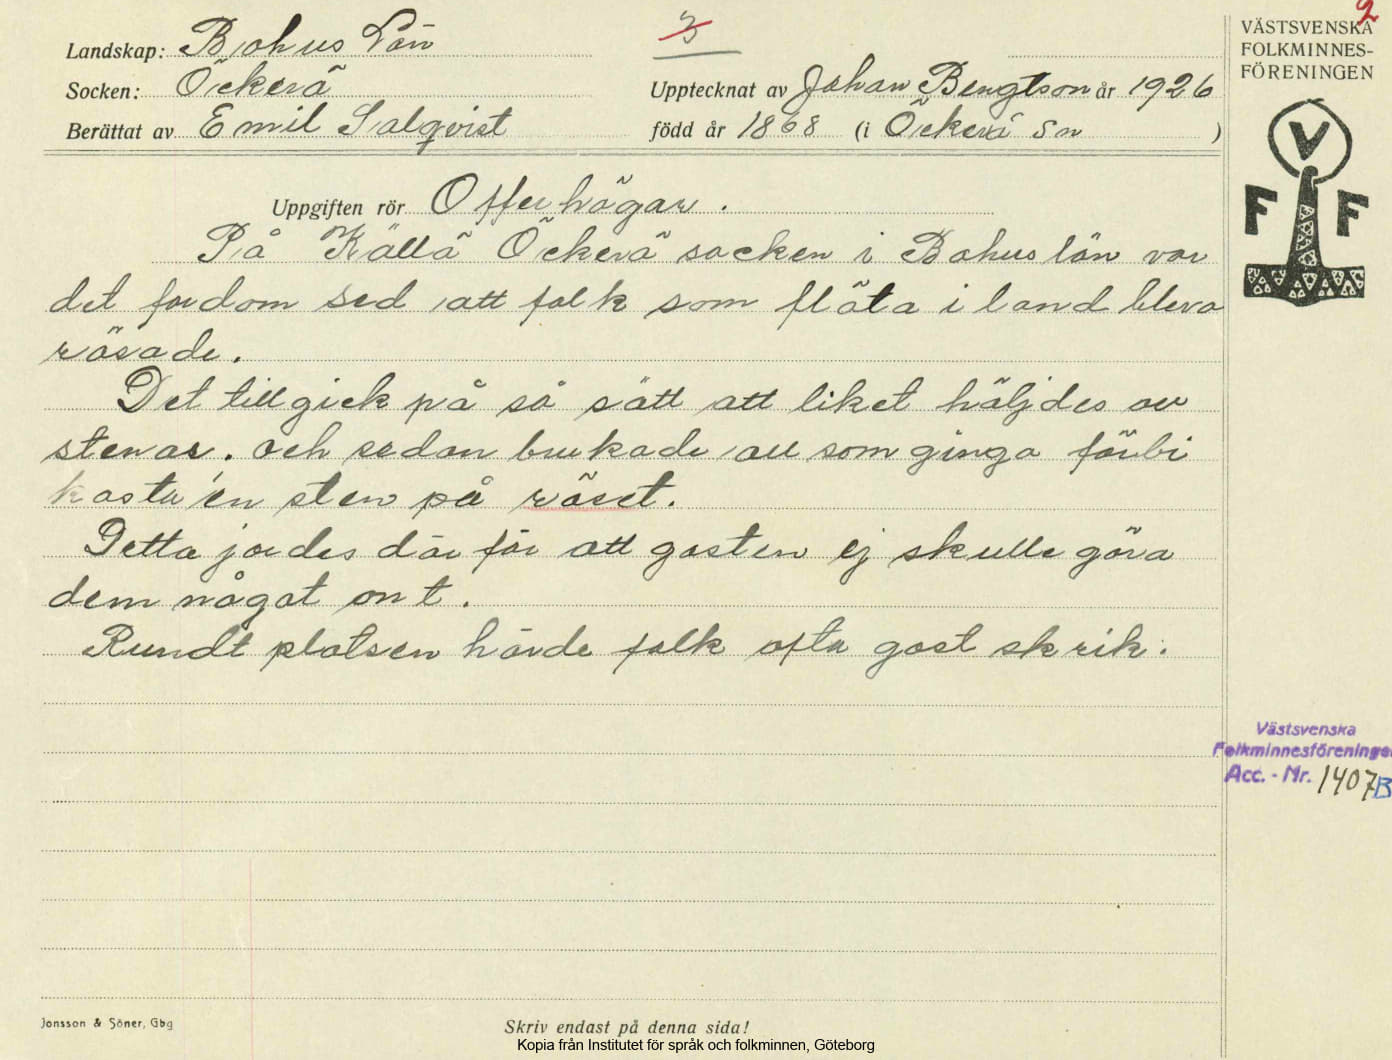 2
3
VÄSTSVENSKA
FOLKMINNES-
FÖRENINGEN
Landskap: Bohus Län
Socken: Öckerö
Upptecknat av Johan Bengtson år 1926
Berättat av Emil Salqvist
född år 1868 (i Öckerö Sn )
V
F F
Uppgiften rör Offerhögar.
På Källö Öckerö socken i Bohus län var
det fordom sed att folk som flöto i land bleva
rösade.
Det tillgick på så sätt att liket höljdes av
stenar. och sedan brukade all som gingo förbi
kasta en sten på röset.
Detta jordes där för att gasten ej skulle göra
dem något ont.
Rundt platsen hörde folk ofta gast skrik.
Västsvenska
Folkminnesföreningen
Acc. - Nr. 1407 B
Jonsson & Söner, Gbg
Skriv endast på denna sida!
Kopia från Institutet för språk och folkminnen, Göteborg